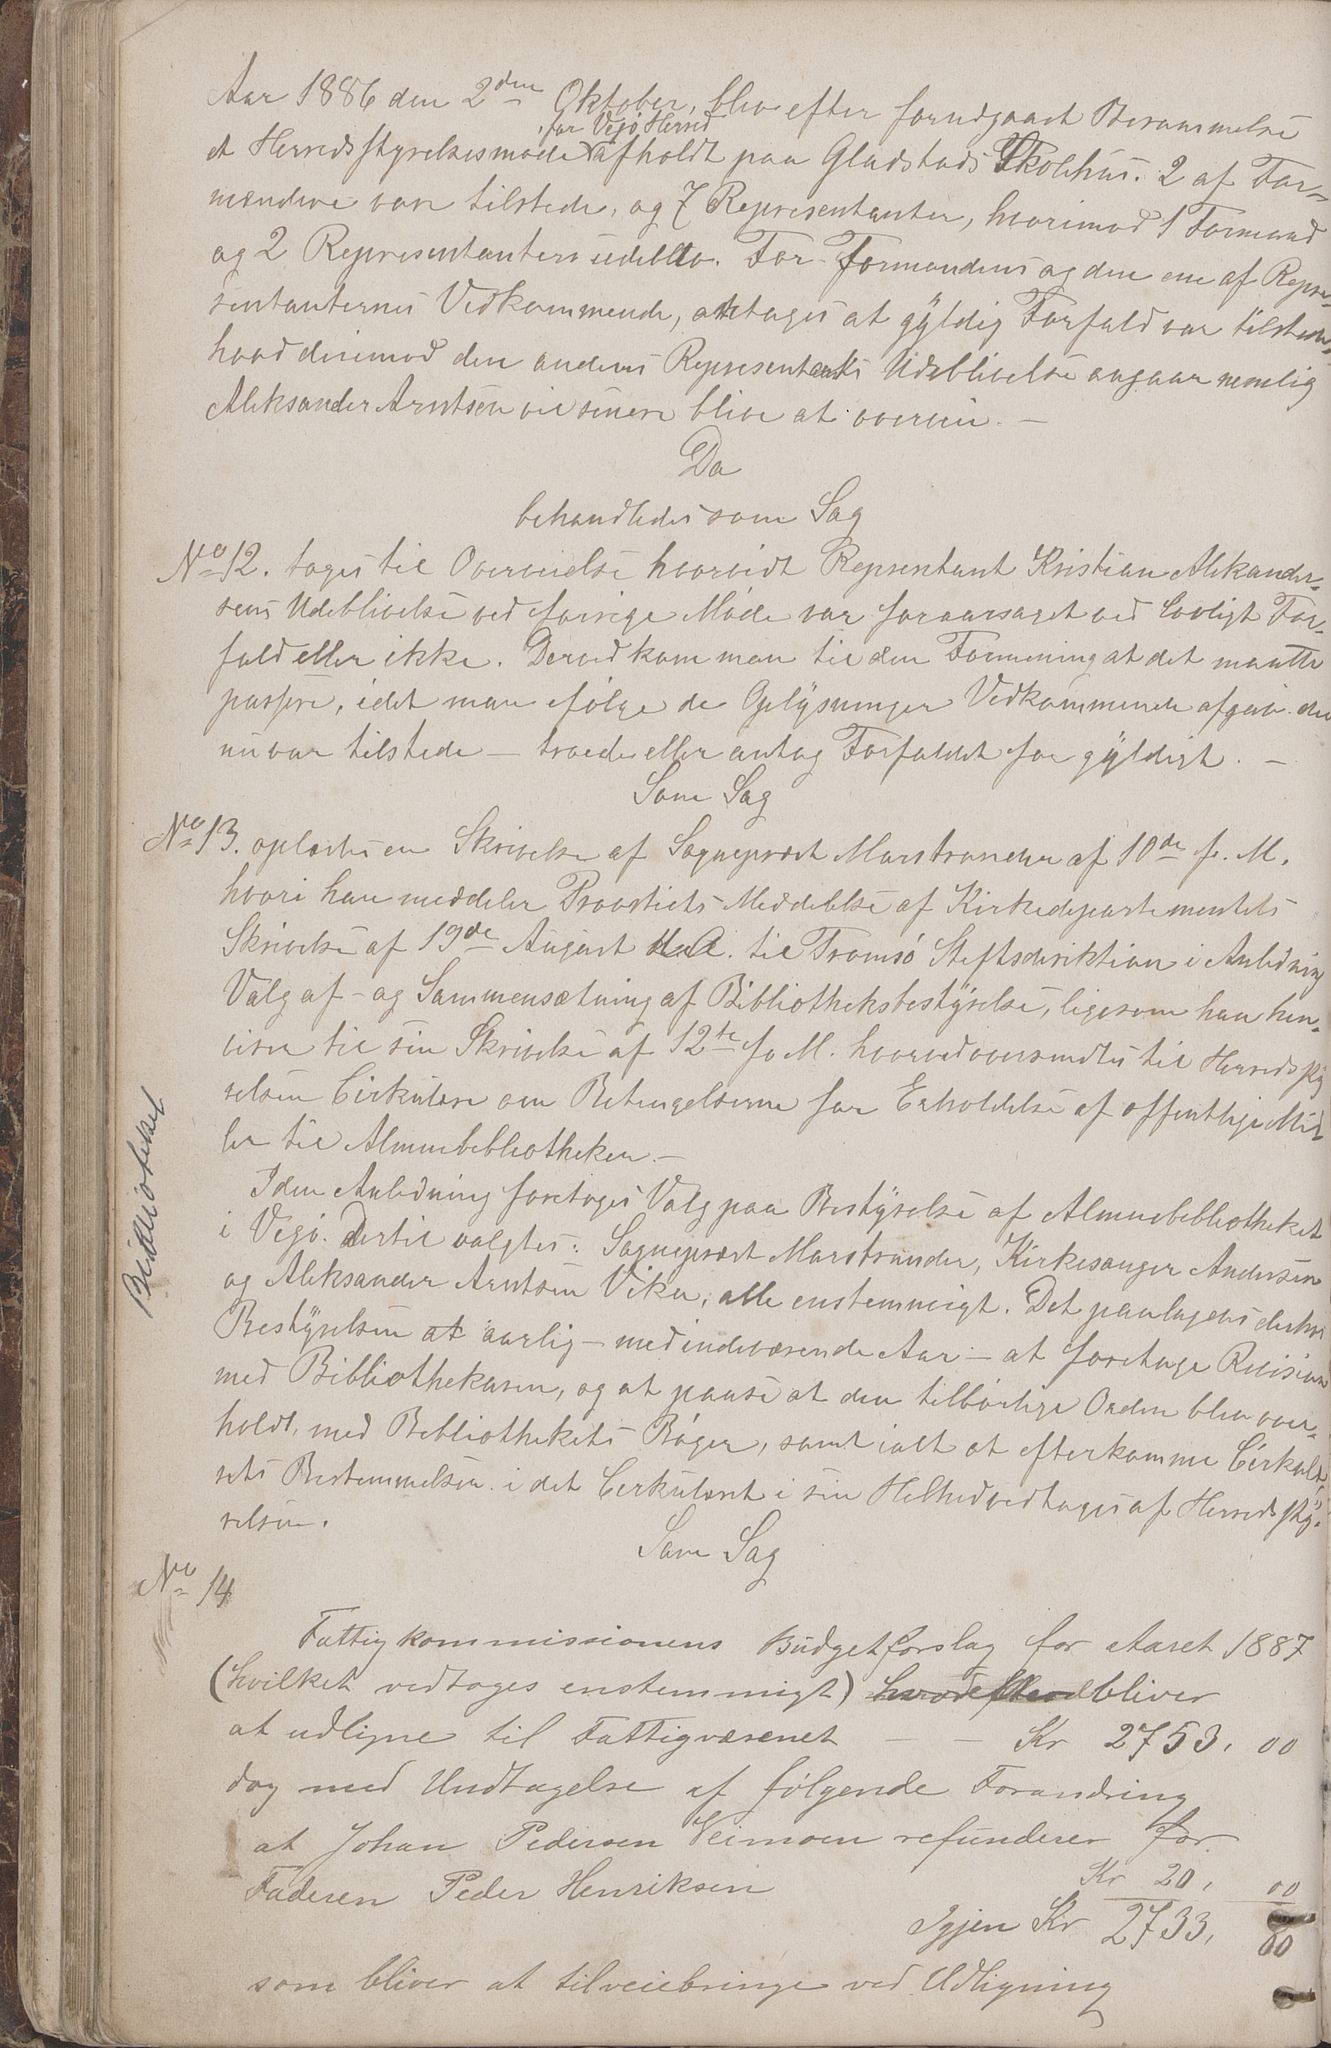 Aar 1886 den 2den Oktober, blev efter forudgaaet Berammelse
et Herredsstyrelsesmøde, for Vegø Herred afholdt paa Gladstads Skolehus. 2 af For-
mændene var tilstede, og 7 Representanter, hvorimod 1 Formand
og 2 Representanter udeblev. For Formandens og den ene af Repre-
sentanternes Vedkommende, antages at gyldig Forfald var tilstede,
hvad derimod den andens Representants Udeblivelse angaar nemlig
Aleksander Arntsen vil senere blive at overveie. —
Da
behandledes som Sag
No 12. toges til Overveielse hvorvidt Representant Kristian Aleksander-
sens Udeblivelse ved forrige Møde var foraarsaget ved Lovligt For-
fald eller ikke. Derved kom man til den Formening at det maatte
passere, idet man ifølge de Oplysninger Vedkommende afgav der
nu var tilstede — troede eller antog Forfaldet for gyldigt. —
Som Sag
No 13. oplæstes en Skrivelse af Sogneprest Marstrander af 10de f. M.
hvori han meddeler Provstiets Meddelelse af Kirkedepartementets
Skrivelse af 19de August d. A. til Tromsø Stiftsdirektion i Anledning
Valg af - og Sammensætning af Bibliotheksbestyrelse, ligesom han hen-
viser til sin Skrivelse af 12te f. M. hvorved oversendtes til Herredssty-
relsen Cirkulære om Betingelserne for Erholdelse af offentlige Mid-
ler til Almuebibliotheker. —
I den Anledning foretoges Valg paa Bestyrelse af Almuebibliotheket
i Vegø. Dertil valgtes: Sogneprest Marstrander, Kirkesanger Andersen
og Aleksander Arntsen Vika, alle enstemmigt. Det paalægges derhos
Bestyrelsen at aarlig — med indeværende Aar — at foretage Revision
med Bibliothekaren, og at paase at den tilbørlige Orden blev over-
holdt, med Bibliothekets Bøger, samt ialt at efterkomme Cirkulæ-
rets Bestemmelser i det Cirkulæret i sin Helhed vedtages af Herredssty-
relsen.
Som Sag
No 14
Fattigkommissionens Budgetforslag for Aaret 1887
(hvilket vedtages enstemmigt) bliver
at udligne til Fattigvæsenet — — Kr 2753, 00
dog med Undtagelse af følgende Forandring
at Johan Pedersen Veimoen refunderer for
Faderen Peder Henriksen Kr 20, 00
Igjen Kr 2733, 00
som bliver at tilveiebringe ved Udligning
Bibliotheket